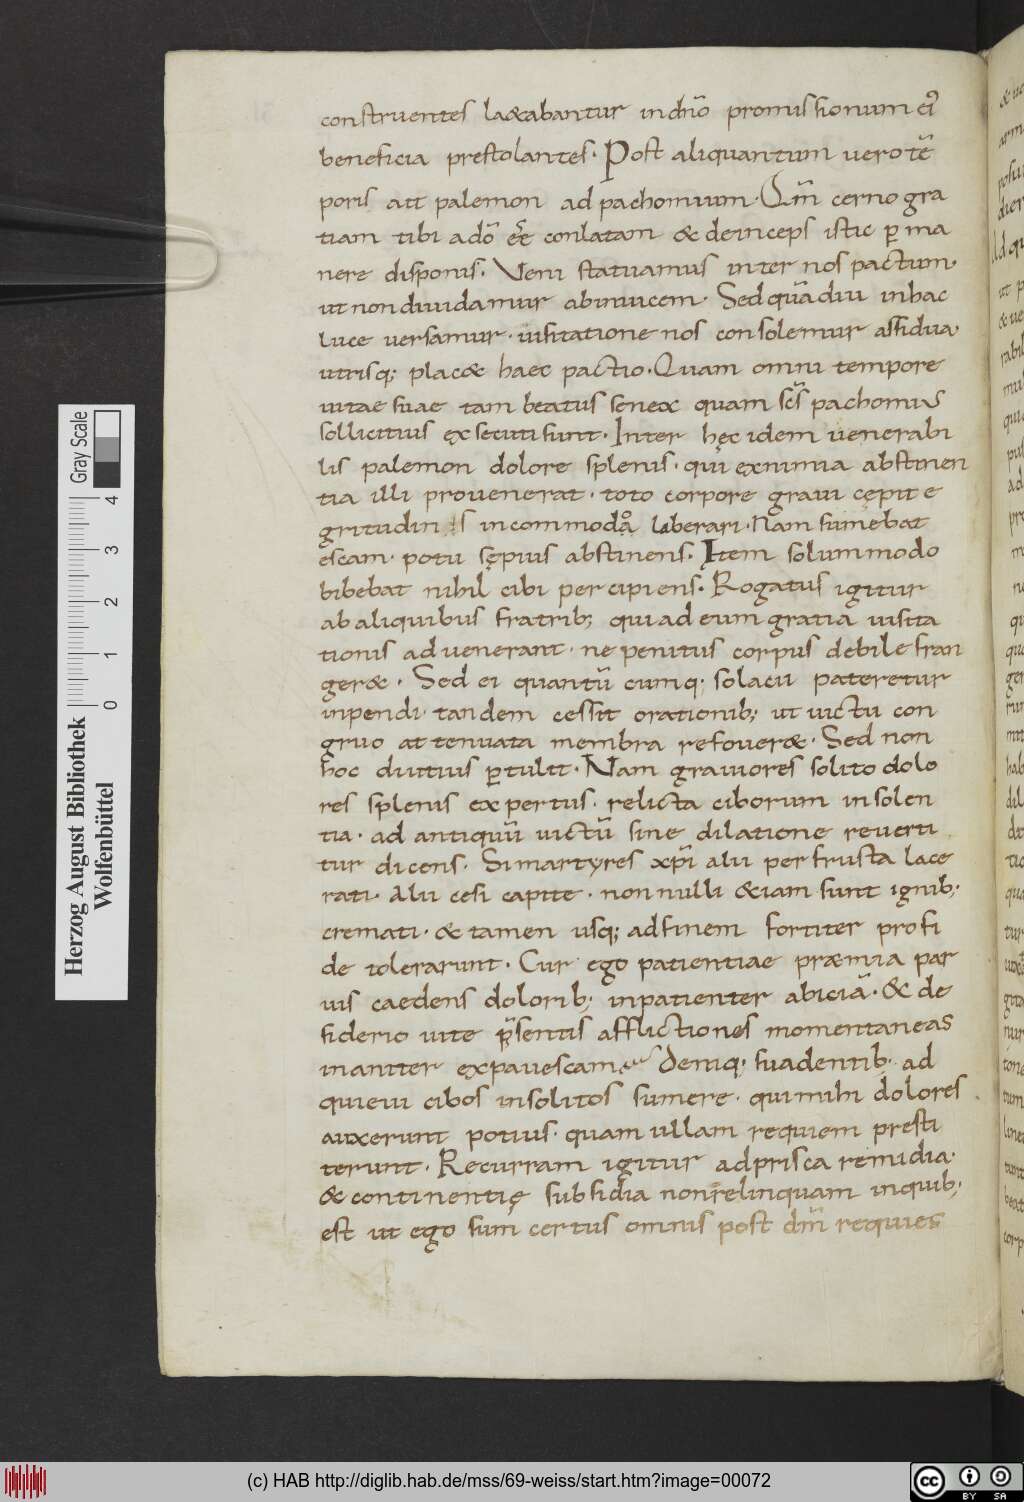 construentes la&abantur indn̄o promissionum ei᷒
beneficia prestolantes. Post aliquantum uero tē
poris ait palemon ad pachomium. Qm̄ cerno gra
tiam tibi adō ēē conlatam & deinceps istic ꝑma
nere disponis. Veni statuamus inter nos pactum.
ut non diuidamur abinuicem. Sed quādiu inhac
luce uersamur. uisitatione nos consolemur assidua.
utrisq; plac& haec pactio. Quam omni tempore
uitae suae tam beatus senex quam sc̄s pachomius
sollicitius exsecuti sunt. Inter hęc idem uenerabi
lis palemon dolore splenis. qui exnimia abstinen
tia illi prouenerat. toto corpore graui cępit e
gritudin is incommodo laberari. Nam sumebat
escam. potu sępius abstinens. Item solummodo
bibebat nihil cibi percipiens. Rogatus igitur
ab aliquibus fratrib; qui ad eum gratia uisita
tionis aduenerant. ne penitus corpus debile fran
ger&. Sed ei quantū cumq; solacii pateretur
inpendi. tandem cessit orationib; ut uictu con
gruo attenuata membra refouer&. Sed non
hoc diutius ꝑtulit. Nam grauiores solito dolo
res splenis expertus. relicta ciborum insolen
tia. ad antiquū uictū sine dilatione reuerti
tur dicens. Si martyres xp̄i alii per frusta lace
rati. Alii cesi capite. nonnulli &iam sunt ignib;
cremati. & tamen usq; ad finem fortiter pro fi
de tolerarunt. Cur ego patientiae præmia par
uis caedens dolorib; inpatienter abiciā. & de
siderio uite p̄sentis afflictiones momentaneas
inaniter expauescam. Deniq; suadentib; ad
quieui cibos insolitos sumere. qui mihi dolores
auxerunt potius. quam ullam requiem presti
terunt. Recurram igitur ad prisca remidia.
& continentię subsidia non relinquam inquib;
est ut ego sum certus omnis post dm̄ requies
Herzog August Bibliothek
Wolfenbüttel
Gray Scale
0 1 2 3 4
(c) HAB http://diglib.hab.de/mss/69-weiss/start.htm?image=00072
cc BY SA